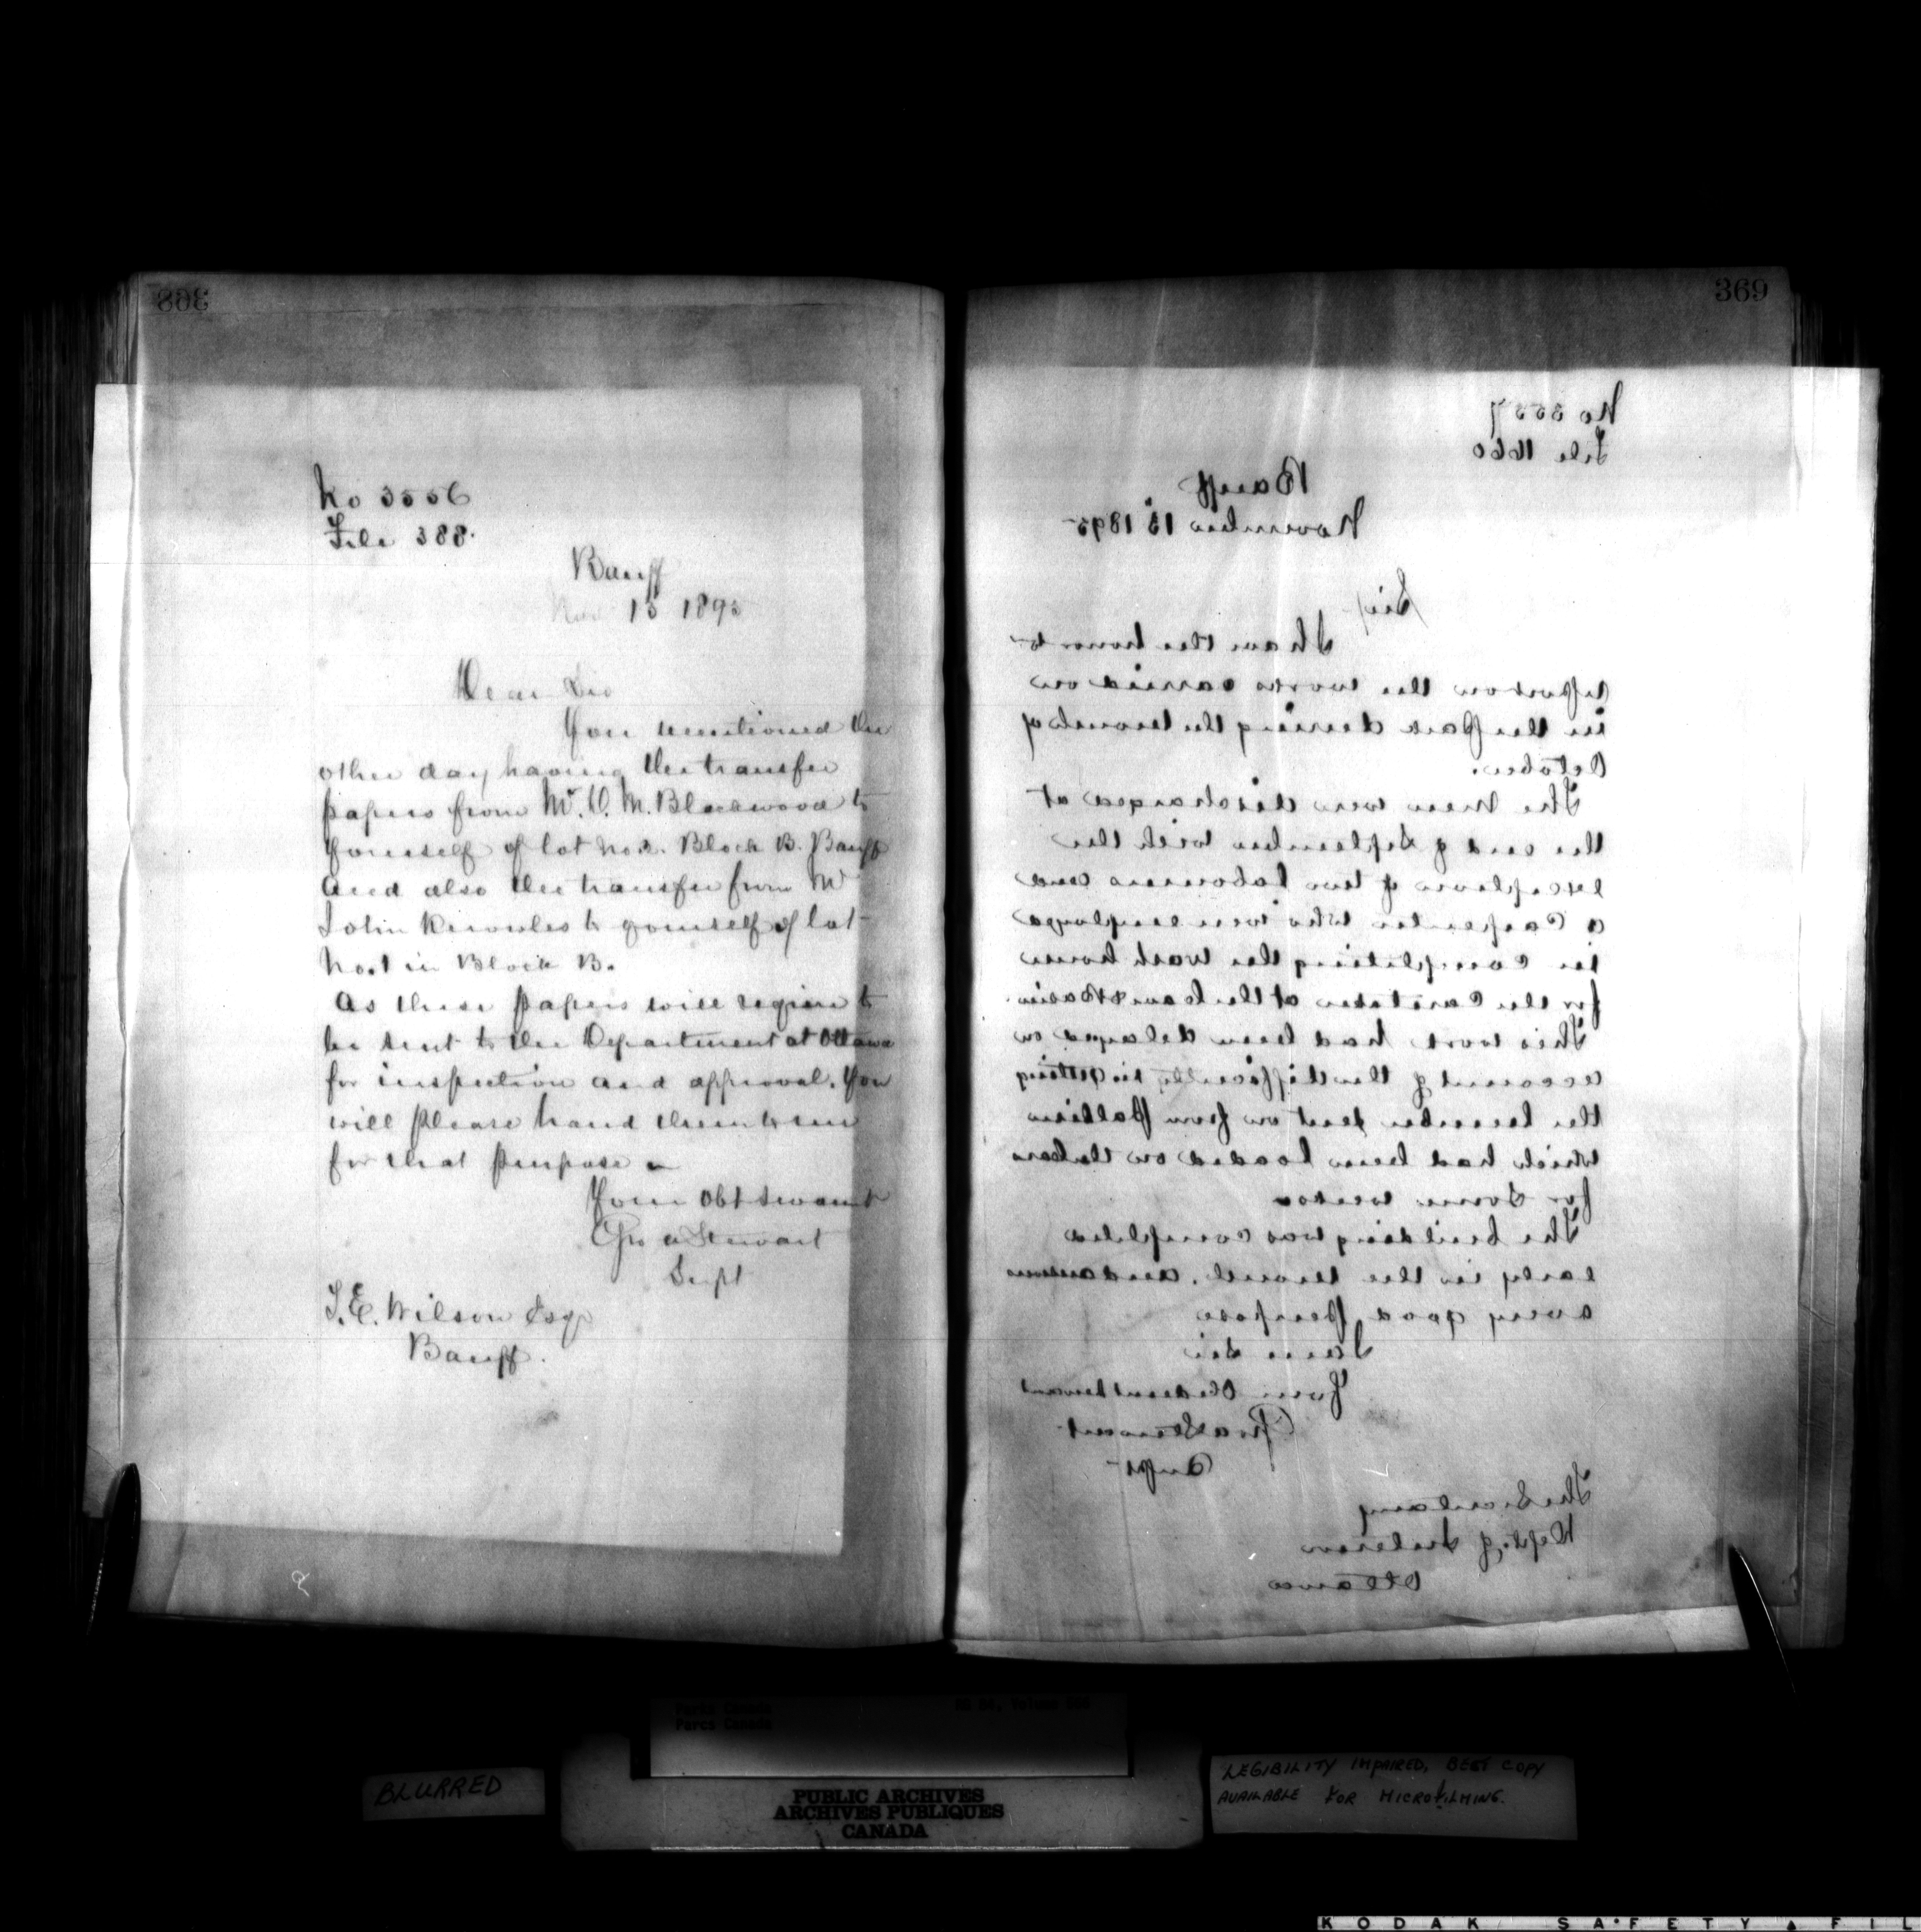 368
No 3556
File 388.
Banff
Nov 15 1895
Dear Sir
You mentioned the
other day having the transfer
papers from Mr. O. M. Blackwood to
yourself of lot No. 2. Block B. Banff
and also the transfer from Mr
John Knowles to yourself of lot
No. 1 in Block B.
As these papers will require to
be sent to the Department at Ottawa
for inspection and approval. You
will please hand them to me
for that purpose
Your Obt servant
Geo A Stewart
Supt
T. E. Wilson Esqr
Banff.
369
No 3557
File 1660
Banff
November 15 1895
Sir,
I have the honor to
report on the works carried on
in the Park during the month of
October.
The men were discharged at
the end of September with the
exception of two labourers and
a Carpenter who were employed
in completing the wash house
for the Caretaker at the Cave & Basin.
This work had been delayed on
account of the difficulty in getting
the lumber sent on from Palliser
which had been loaded on the cars
for some weeks
The building was completed
early in the month, and answers
a very good purpose
I am Sir
Your Obedient Servant
Geo A Stewart
Supt
The Secretary
Dept. of Interior
Ottawa
BLURRED
Parks Canada
Parcs Canada
PUBLIC ARCHIVES
ARCHIVES PUBLIQUES
CANADA
LEGIBILITY IMPAIRED, BEST COPY
AVAILABLE FOR MICROFILMING.
KODAK SAFETY FIL